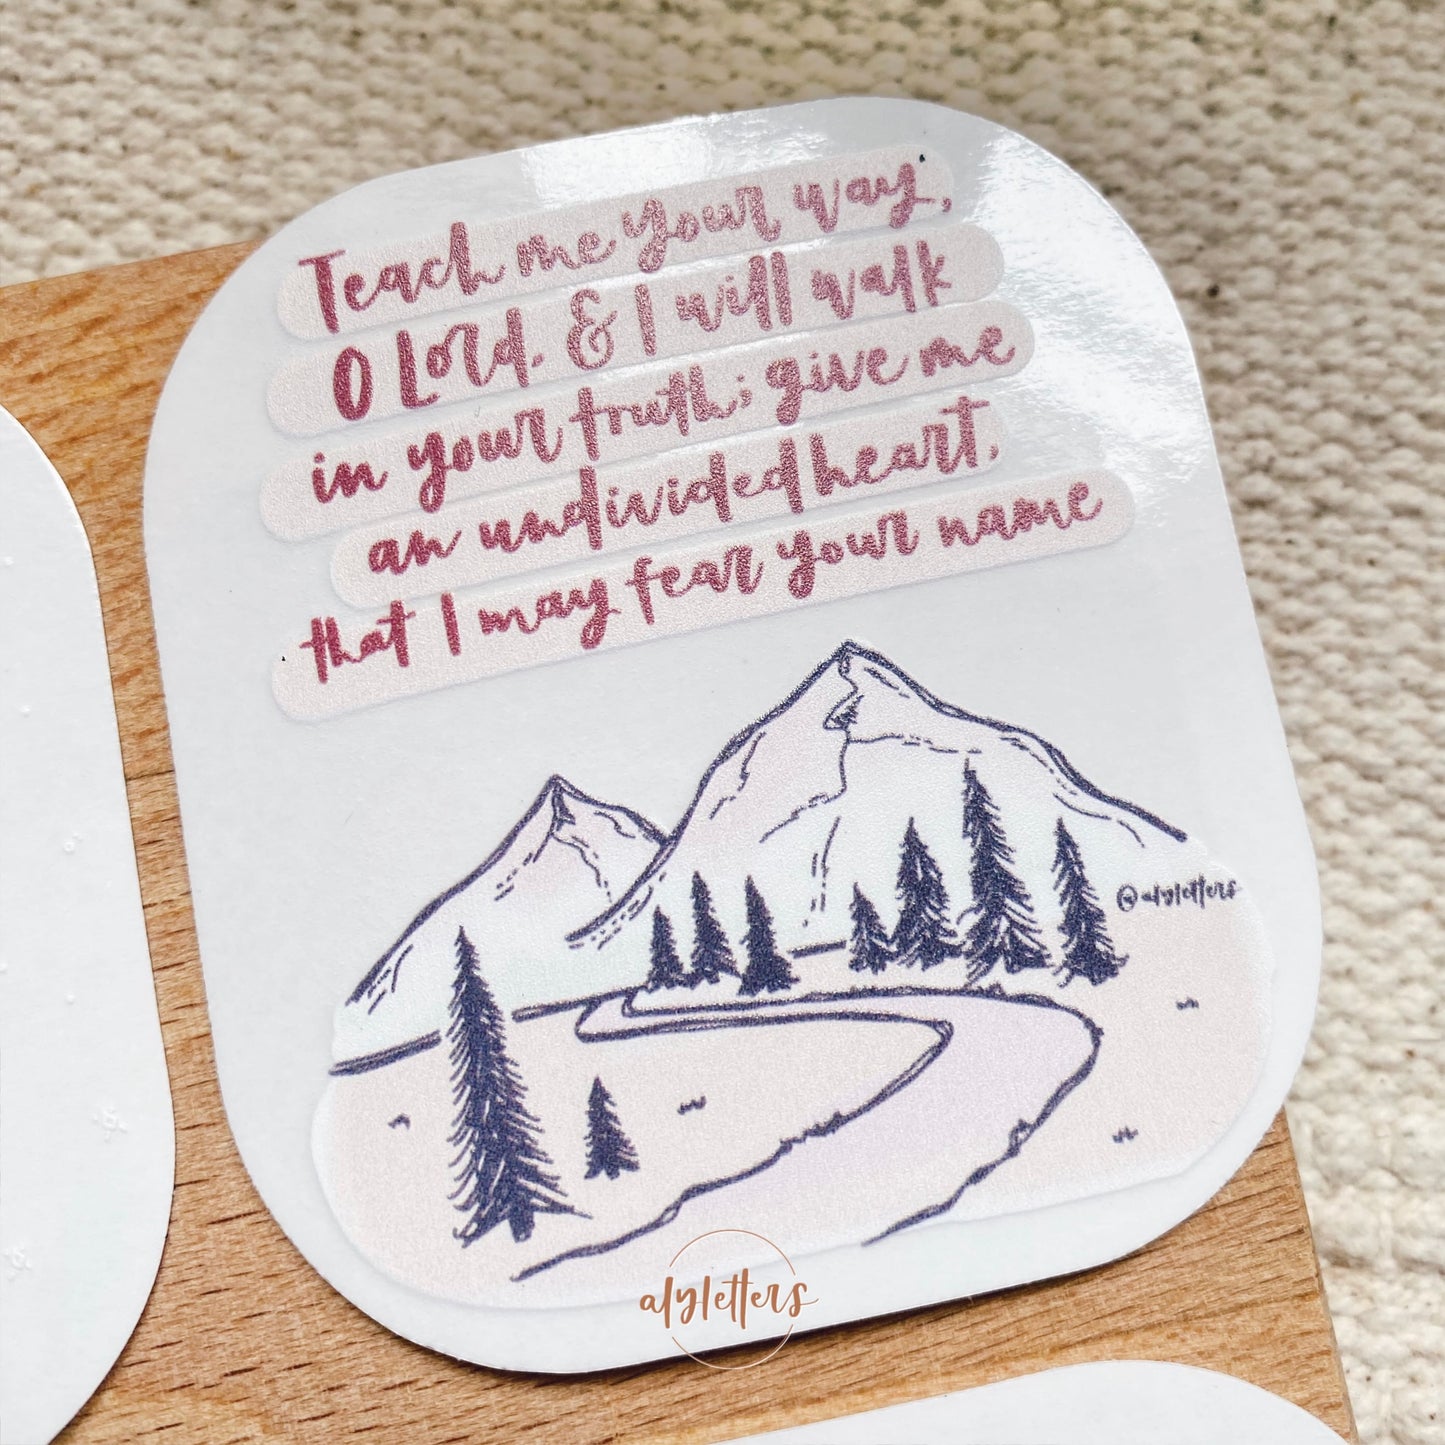 Teach me your way,
O Lord. & I will walk
in your truth; give me
an undivided heart,
that I may fear your name
@alyletters
alyletters